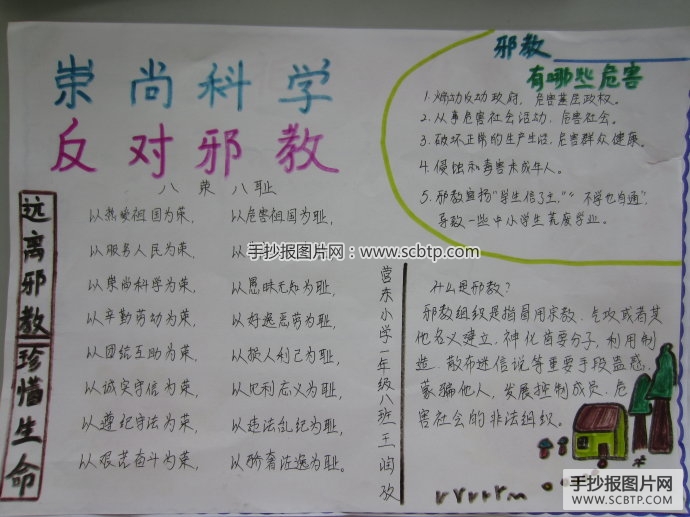 崇尚科学
反对邪教
远离邪教 珍惜生命
八荣八耻
以热爱祖国为荣，以危害祖国为耻，
以服务人民为荣，以
以崇尚科学为荣，以愚昧无知为耻，
以辛勤劳动为荣，以好逸恶劳为耻，
以团结互助为荣，以损人利己为耻，
以诚实守信为荣，以见利忘义为耻，
以遵纪守法为荣，以违法乱纪为耻，
以艰苦奋斗为荣，以骄奢淫逸为耻。
手抄报图片网：www.scbtp.com
营东小学一年级八班王润
邪教
有哪些危害
1. 煽动反动政府，危害基层政权。
2. 从事危害社会活动，危害社会。
3. 破坏正常的生产生活，危害群众健康。
4. 侵蚀和毒害未成年人。
5. 邪教宣扬“学生信了主，”“不学也自通”，
导致一些中小学生荒废学业。
什么是邪教？
邪教组织是指冒用宗教、气功或者其
他名义建立，神化首要分子，利用制
造、散布迷信说等重要手段蛊惑，
蒙骗他人，发展控制成员，危
害社会的非法组织。
手抄报图片网
WWW.SCBTP.COM